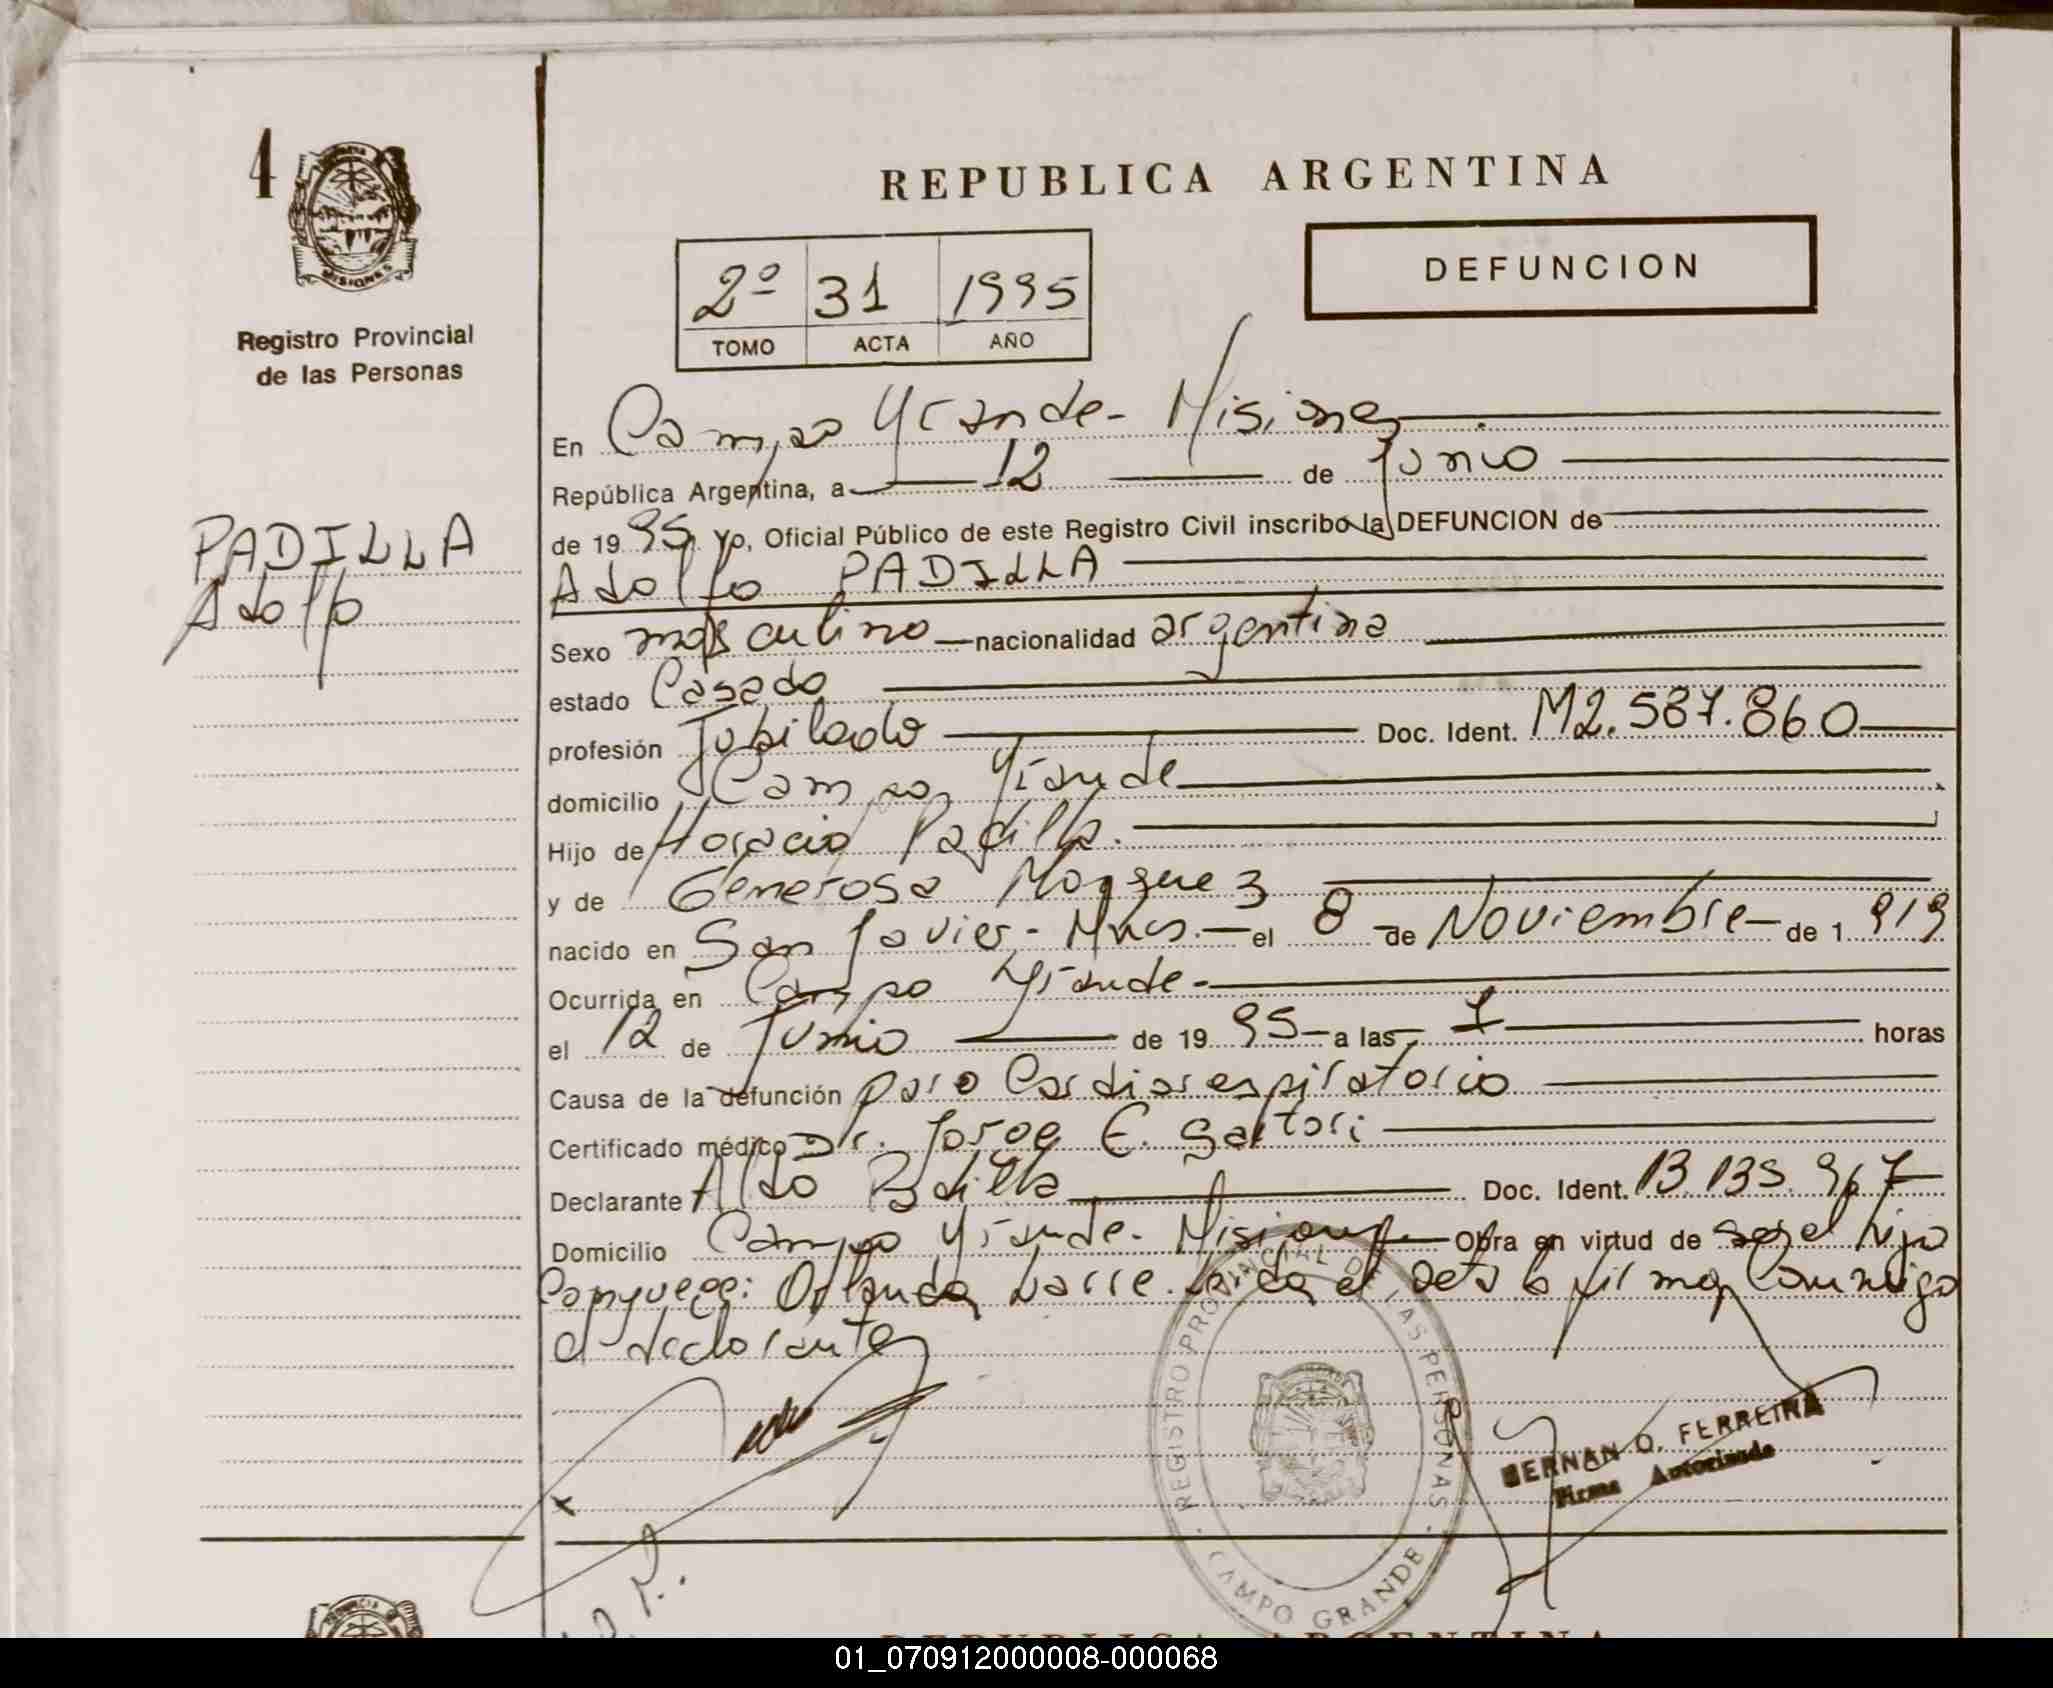 4
MISIONES
Registro Provincial
de las Personas
PADILLA
Adolfo
REPUBLICA ARGENTINA
DEFUNCION
2º 31 1995
TOMO ACTA AÑO
En Campo Grande - Misiones
República Argentina, a 12 de Junio
de 1995 yo, Oficial Público de este Registro Civil inscribo la DEFUNCION de
Adolfo PADILLA
Sexo masculino nacionalidad argentina
estado Casado
profesión Jubilado Doc. Ident. M2.587.860
domicilio Campo Grande
Hijo de Horacio Padilla.
y de Generosa Marquez
nacido en San Javier - Mnes. el 8 de Noviembre de 1919
Ocurrida en Campo Grande -
el 12 de Junio de 1995 a las 1 horas
Causa de la defunción paro Cardiorespiratorio
Certificado médico Dr. Jorge E. Sartori
Declarante Aldo Padilla Doc. Ident. 13.135.967
Domicilio Campo Grande - Misiones Obra en virtud de ser el hijo
el acta la firma Conmigo
el declarante
REGISTRO PROVINCIAL DE LAS PERSONAS
CAMPO GRANDE
O. FERREIRA
Firma Autorizada
REPUBLICA ARGENTINA
01_070912000008-000068